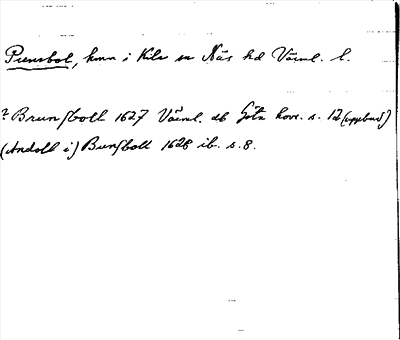 Prensbol, hmn i Kila sn Näs hd Värml. l.
? Brunsboll 1627 Värml. db Göta hovr. s. 12 (uppbud)
(Andoll i) Bunsboll 1628 ib. s. 8.